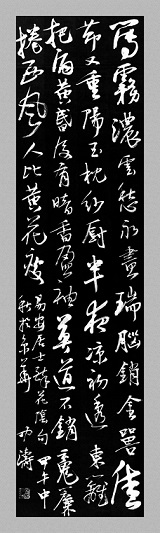 薄霧濃雲愁永晝瑞腦銷金獸佳
節又重陽玉枕紗厨半夜涼初透東籬
把酒黃昏後有暗香盈袖莫道不銷魂簾
捲西風人比黃花瘦
易安居士醉花陰句甲午中
秋於京華